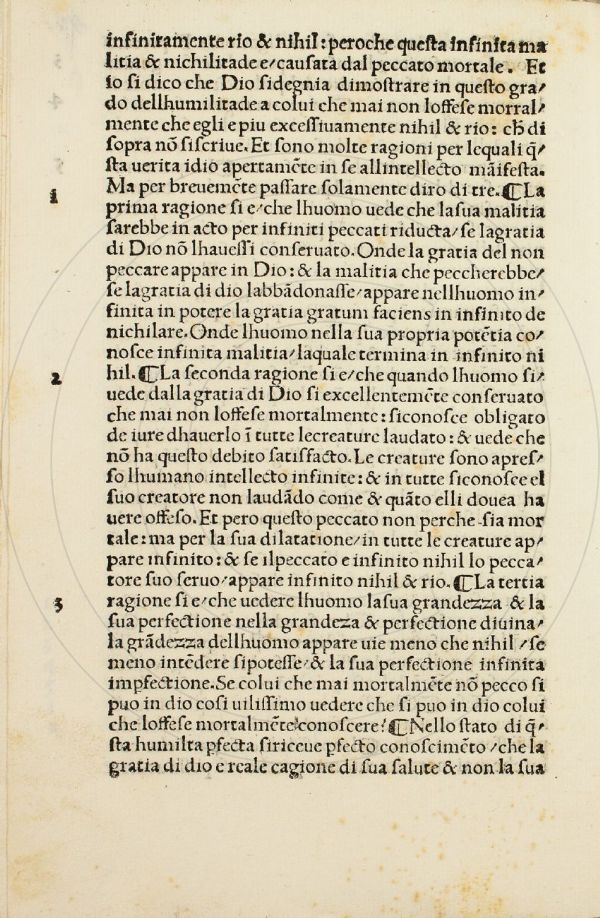 infinitamente rio & nihil: peroche questa infinita ma
litia & nichilitade e/causata dal peccato mortale. Et
io si dico che Dio sidegnia dimostrare in questo gra/
do dellhumilitade a colui che mai non loffese morral/
mente che egli e piu excessiuamente nihil & rio: ch̄ di
sopra nō siscriue. Et sono molte ragioni per lequali q̄/
sta uerita idio apertamēte in se allintellecto māifesta.
1 Ma per breuemēte passare solamente diro di tre. ¶ La
prima ragione si e/che lhuomo uede che lasua malitia
sarebbe in acto per infiniti peccati riducta/se lagratia
di Dio nō lhauessi conseruato. Onde la gratia del non
peccare appare in Dio: & la malitia che peccherebbe/
se lagratia di dio labbādonasse/appare nellhuomo in/
finita in potere la gratia gratum faciens in infinito de
nichilare. Onde lhuomo nella sua propria potētia co/
nosce infinita malitia/laquale termina in infinito ni
2 hil. ¶ La seconda ragione si e/che quando lhuomo si/
uede dalla gratia di Dio si excellentemēte conseruato
che mai non loffese mortalmente: siconosce obligato
de iure dhauerlo ī tutte lecreature laudato: & uede che
nō ha questo debito satisfacto. Le creature sono apres/
so lhumano intellecto infinite: & in tutte siconosce el
suo creatore non laudādo come & quāto elli douea ha
uere offeso. Et pero questo peccato non perche sia mor
tale: ma per la sua dilatatione/in tutte le creature ap/
pare infinito: & se ilpeccato e infinito nihil lo pecca/
tore suo seruo/appare infinito nihil & rio. ¶ La tertia
3 ragione si e/che uedere lhuomo lasua grandezza & la
sua perfectione nella grandeza & perfectione diuina/
la grādezza dellhuomo appare uie meno che nihil/se
meno intēdere sipotesse/& la sua perfectione infinita
impfectione. Se colui che mai mortalmēte nō pecco si
puo in dio cosi uilissimo uedere che si puo in dio colui
che loffese mortalmēte conoscere? ¶ Nello stato di q̄/
sta humilta pfecta siriceue pfecto conoscimēto/che la
gratia di dio e reale cagione di sua salute & non la sua